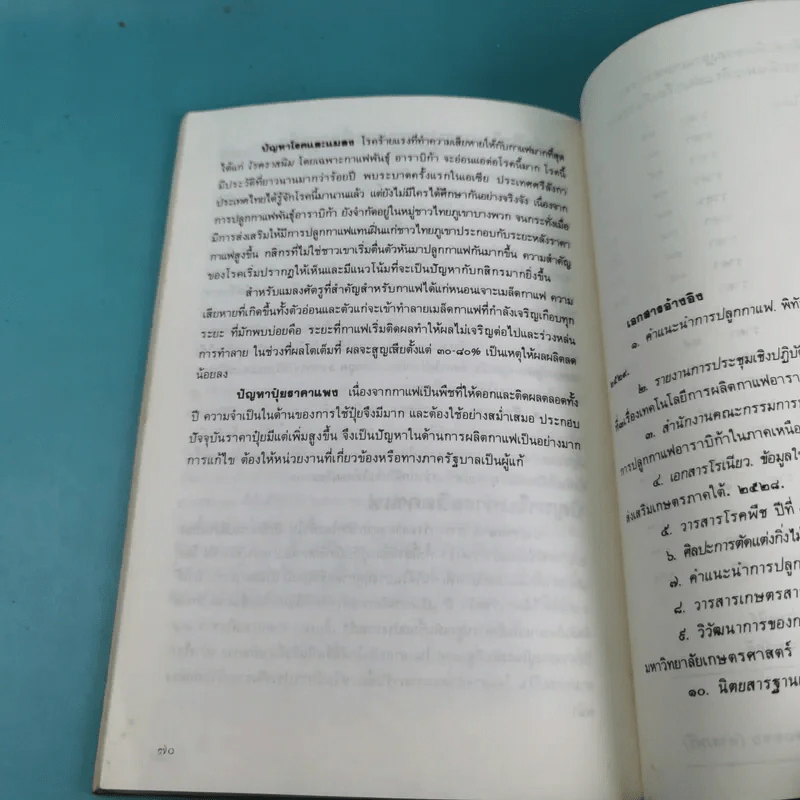 ปัญหาโรคและแมลง โรคร้ายแรงที่ทำความเสียหายให้กับกาแฟมากที่สุด
ได้แก่ โรคราสนิม โดยเฉพาะกาแฟพันธุ์ อาราบิก้า จะอ่อนแอต่อโรคนี้มาก โรคนี้
มีประวัติที่ยาวนานมากว่าร้อยปี พบระบาดครั้งแรกในเอเซีย ประเทศศรีลังกา
ประเทศไทยได้รู้จักโรคนี้มานานแล้ว แต่ยังไม่มีใครได้ศึกษากันอย่างจริงจัง เนื่องจาก
การปลูกกาแฟพันธุ์อาราบิก้า ยังจำกัดอยู่ในหมู่ชาวไทยภูเขาบางพวก จนกระทั่งเมื่อ
มีการส่งเสริมให้มีการปลูกกาแฟแทนฝิ่นแก่ชาวไทยภูเขาประกอบกับระยะหลังราคา
กาแฟสูงขึ้น กสิกรที่ไม่ใช่ชาวเขาเริ่มตื่นตัวหันมาปลูกกาแฟกันมากขึ้น ความสำคัญ
ของโรคเริ่มปรากฏให้เห็นและมีแนวโน้มที่จะเป็นปัญหากับกสิกรมากยิ่งขึ้น
สำหรับแมลงศัตรูที่สำคัญสำหรับกาแฟได้แก่หนอนเจาะเมล็ดกาแฟ ความ
เสียหายที่เกิดขึ้นทั้งตัวอ่อนและตัวแก่จะเข้าทำลายเมล็ดกาแฟที่กำลังเจริญเกือบทุก
ระยะ ที่มักพบบ่อยคือ ระยะที่กาแฟเริ่มติดผลทำให้ผลไม่เจริญต่อไปและร่วงหล่น
การทำลาย ในช่วงที่ผลโตเต็มที่ ผลจะสูญเสียตั้งแต่ ๓๐-๘๐% เป็นเหตุให้ผลผลิตลด
น้อยลง
ปัญหาปุ๋ยราคาแพง เนื่องจากกาแฟเป็นพืชที่ให้ดอกและติดผลตลอดทั้ง
ปี ความจำเป็นในด้านของการใช้ปุ๋ยจึงมีมาก และต้องใช้อย่างสม่ำเสมอ ประกอบ
ปัจจุบันราคาปุ๋ยมีแต่เพิ่มสูงขึ้น จึงเป็นปัญหาในด้านการผลิตกาแฟเป็นอย่างมาก
การแก้ไข ต้องให้หน่วยงานที่เกี่ยวข้องหรือทางภาครัฐบาลเป็นผู้แก้
๗๐
เอกสารอ้างอิง
๑. คำแนะนำการปลูกกาแฟ. พิทั
๒๕๒๙.
๒. รายงานการประชุมเชิงปฏิบั
ที่๓เรื่องเทคโนโลยีการผลิตกาแฟอารา
๓. สำนักงานคณะกรรมการ
การปลูกกาแฟอาราบิก้าในภาคเหนือ
๔. เอกสารโรเนียว. ข้อมูลใ
ส่งเสริมเกษตรภาคใต้. ๒๕๒๘.
๕. วารสารโรคพืช ปีที่
๖. ศิลปะการตัดแต่งกิ่งไม้
๗. คำแนะนำการปลูก
๘. วารสารเกษตรสา
๙. วิวัฒนาการของก
มหาวิทยาลัยเกษตรศาสตร์
๑๐. นิตยสารฐาน